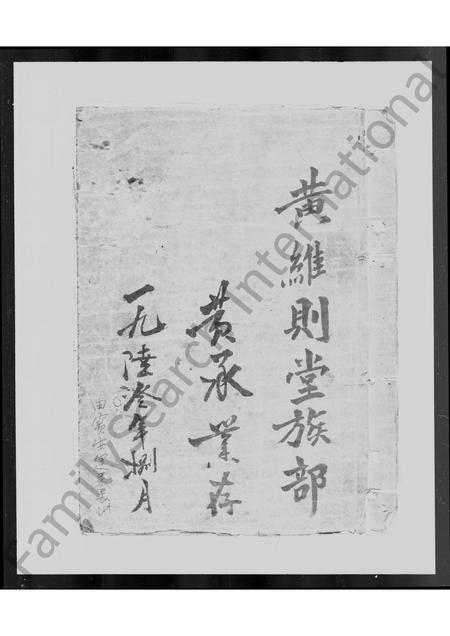 黃維則堂族部
黃承業存
一九陸叁年捌月
FamilySearch International